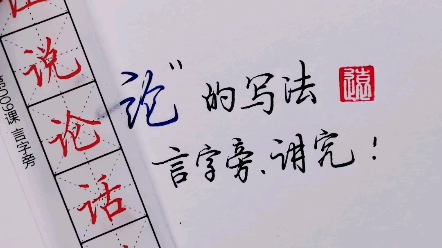 说
论
话
第209课 言字旁
论"的写法
言字旁、讲完！